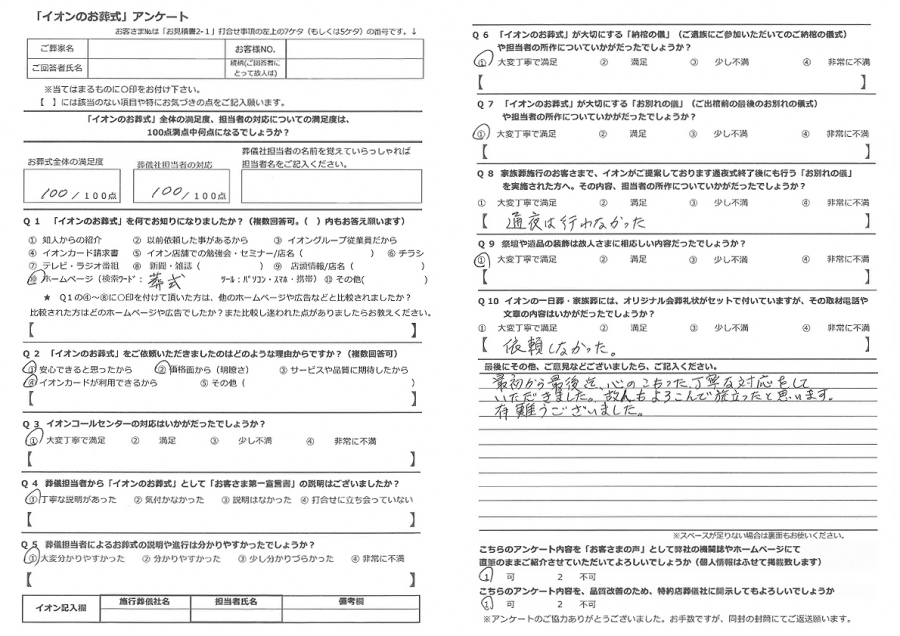 「イオンのお葬式」アンケート
お客さま№は「お見積書2-1」打合せ事項の左上の7ケタ（もしくは5ケタ）の番号です。↓
ご葬家名 お客様NO.
ご回答者氏名 続柄(ご回答者に とって故人は)
※当てはまるものに○印をお付け下さい。
【 】には該当のない項目や特にお気づきの点をご記入願います。
「イオンのお葬式」全体の満足度、担当者の対応についての満足度は、
100点満点中何点になるでしょうか？
お葬式全体の満足度 葬儀社担当者の対応 葬儀社担当者の名前を覚えていらっしゃれば
担当者名をご記入ください。
100/100点 100/100点
Q 1 「イオンのお葬式」を何でお知りになりましたか？（複数回答可。（ ）内もお答え願います）
① 知人からの紹介 ② 以前依頼した事があるから ③ イオングループ従業員だから
④ イオンカード請求書 ⑤ イオン店舗での勉強会・セミナー/店名（ ） ⑥ チラシ
⑦ テレビ・ラジオ番組 ⑧ 新聞・雑誌（ ） ⑨ 店頭情報/店名（ ）
⑩ ホームページ（検索ワード： 葬式 ツール：パソコン・スマホ・携帯） ⑪ その他( )
★ Q1の④～⑧に○印を付けて頂いた方は、他のホームページや広告などと比較されましたか？
比較された方はどのホームページや広告でしたか？また比較し迷われた点がありましたらお教えください。
【 】
Q 2 「イオンのお葬式」をご依頼いただきましたのはどのような理由からですか？（複数回答可）
① 安心できると思ったから ② 価格面から（明瞭さ） ③ サービスや品質に期待したから
④ イオンカードが利用できるから ⑤ その他（ ）
【 】
Q 3 イオンコールセンターの対応はいかがだったでしょうか？
① 大変丁寧で満足 ② 満足 ③ 少し不満 ④ 非常に不満
【 】
Q 4 葬儀担当者から「イオンのお葬式」として「お客さま第一宣言書」の説明はございましたか？
① 丁寧な説明があった ② 気付かなかった ③ 説明はなかった ④ 打合せに立ち会っていない
【 】
Q 5 葬儀担当者によるお葬式の説明や進行は分かりやすかったでしょうか？
① 大変分かりやすかった ② 分かりやすかった ③ 少し分かりづらかった ④ 非常に不満
【 】
イオン記入欄 施行葬儀社名 担当者氏名 備考欄
Q 6 「イオンのお葬式」が大切にする「納棺の儀」（ご遺族にご参加いただいてのご納棺の儀式）
や担当者の所作についていかがだったでしょうか？
① 大変丁寧で満足 ② 満足 ③ 少し不満 ④ 非常に不満
【 】
Q 7 「イオンのお葬式」が大切にする「お別れの儀」（ご出棺前の最後のお別れの儀式）
や担当者の所作についていかがだったでしょうか？
① 大変丁寧で満足 ② 満足 ③ 少し不満 ④ 非常に不満
【 】
Q 8 家族葬施行のお客さまで、イオンがご提案しております通夜式終了後にも行う「お別れの儀」
を実施された方へ。その内容、担当者の所作についていかがだったでしょうか？
① 大変丁寧で満足 ② 満足 ③ 少し不満 ④ 非常に不満
【 通夜は行わなかった 】
Q 9 祭壇や道品の装飾は故人さまに相応しい内容だったでしょうか？
① 大変丁寧で満足 ② 満足 ③ 少し不満 ④ 非常に不満
【 】
Q 10 イオンの一日葬・家族葬には、オリジナル会葬礼状がセットで付いていますが、その取材電話や
文章の内容はいかがだったでしょうか？
① 大変丁寧で満足 ② 満足 ③ 少し不満 ④ 非常に不満
【 依頼しなかった。 】
最後にその他、ご意見などございましたら、ご記入ください。
最初から最後迄、心のこもった丁寧な対応をして
いただきました。故人もよろこんで旅立ったと思います。
有難うございました。
※スペースが足りない場合は裏面もお使いください。
こちらのアンケート内容を「お客さまの声」として弊社の機関誌やホームページにて
直筆のままご紹介させていただいてよろしいでしょうか（個人情報はふせて掲載致します）
1 可 2 不可
こちらのアンケート内容を、品質改善のため、特約店葬儀社に開示してもよろしいでしょうか
1 可 2 不可
※アンケートのご協力ありがとうございました。お手数ですが、同封の封筒にてご返送願います。